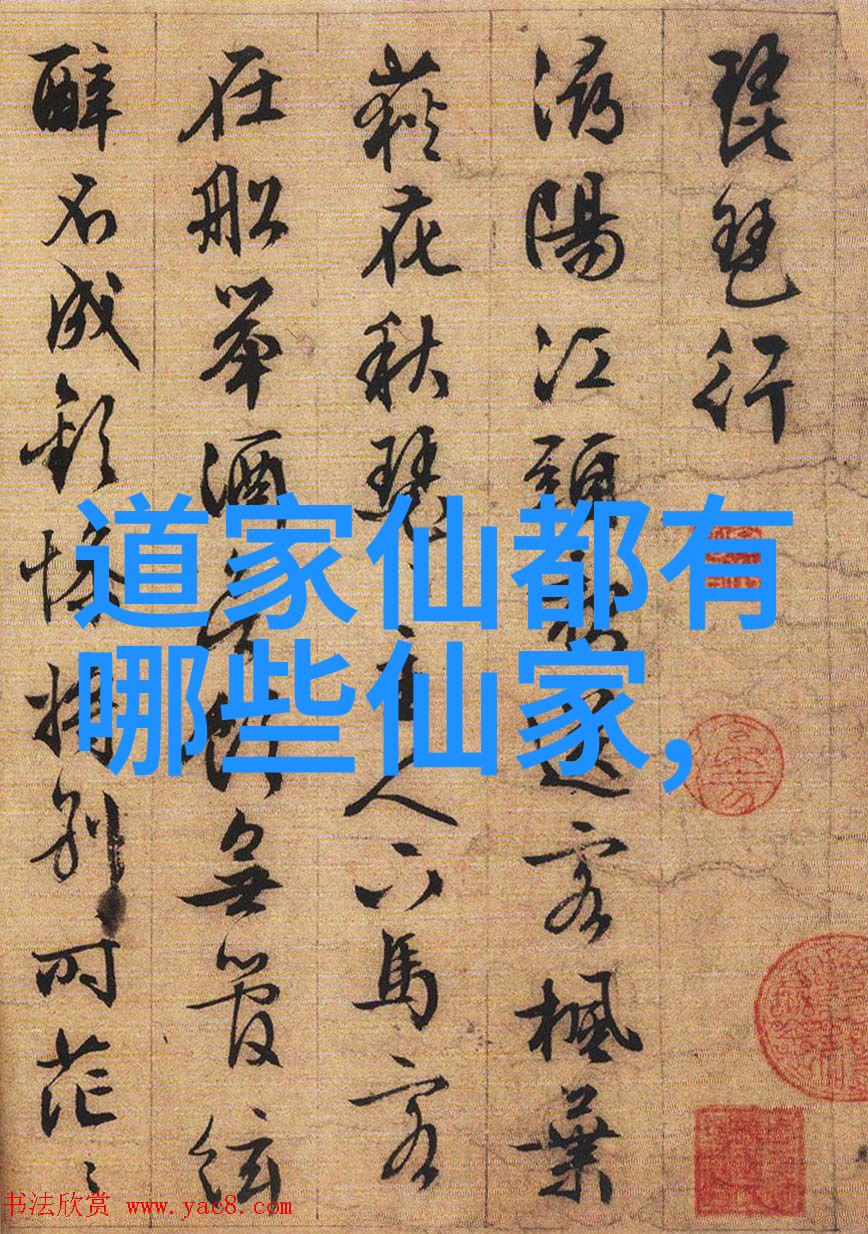 琵琶行
潯陽江頭夜送客楓葉
荻花秋瑟〻主人下馬客
在船舉酒欲飲無管絃
醉不成歡慘將別〻時茫〻
道家仙都有
哪些仙家,
书法欣赏 www.yac8.com